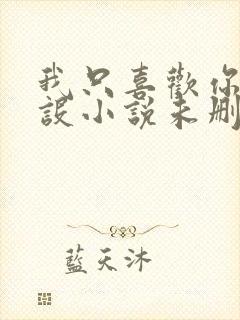 我只喜歡你
設小說未刪
藍天沐